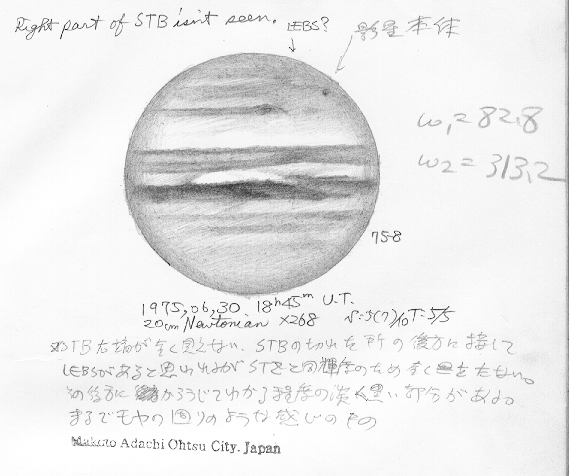 Right part of STB isn't seen.
LEBS?
影星本体
ω₁=82.8
ω₂=313.2
75-8
1975,06,30 18ʰ45ᵐ U.T.
20cm Newtonian ×268 T=5/5
STB右端が全く見えない。STBの切れた所の後方に接して
LEBSがあると思われるがSTZと同輝度のため全く目立たない。
の後方に かろうじてわかる程度の淡く黒い部分がある。
まるでモヤの固りのような感じのもの
Makoto Adachi Ohtsu City. Japan